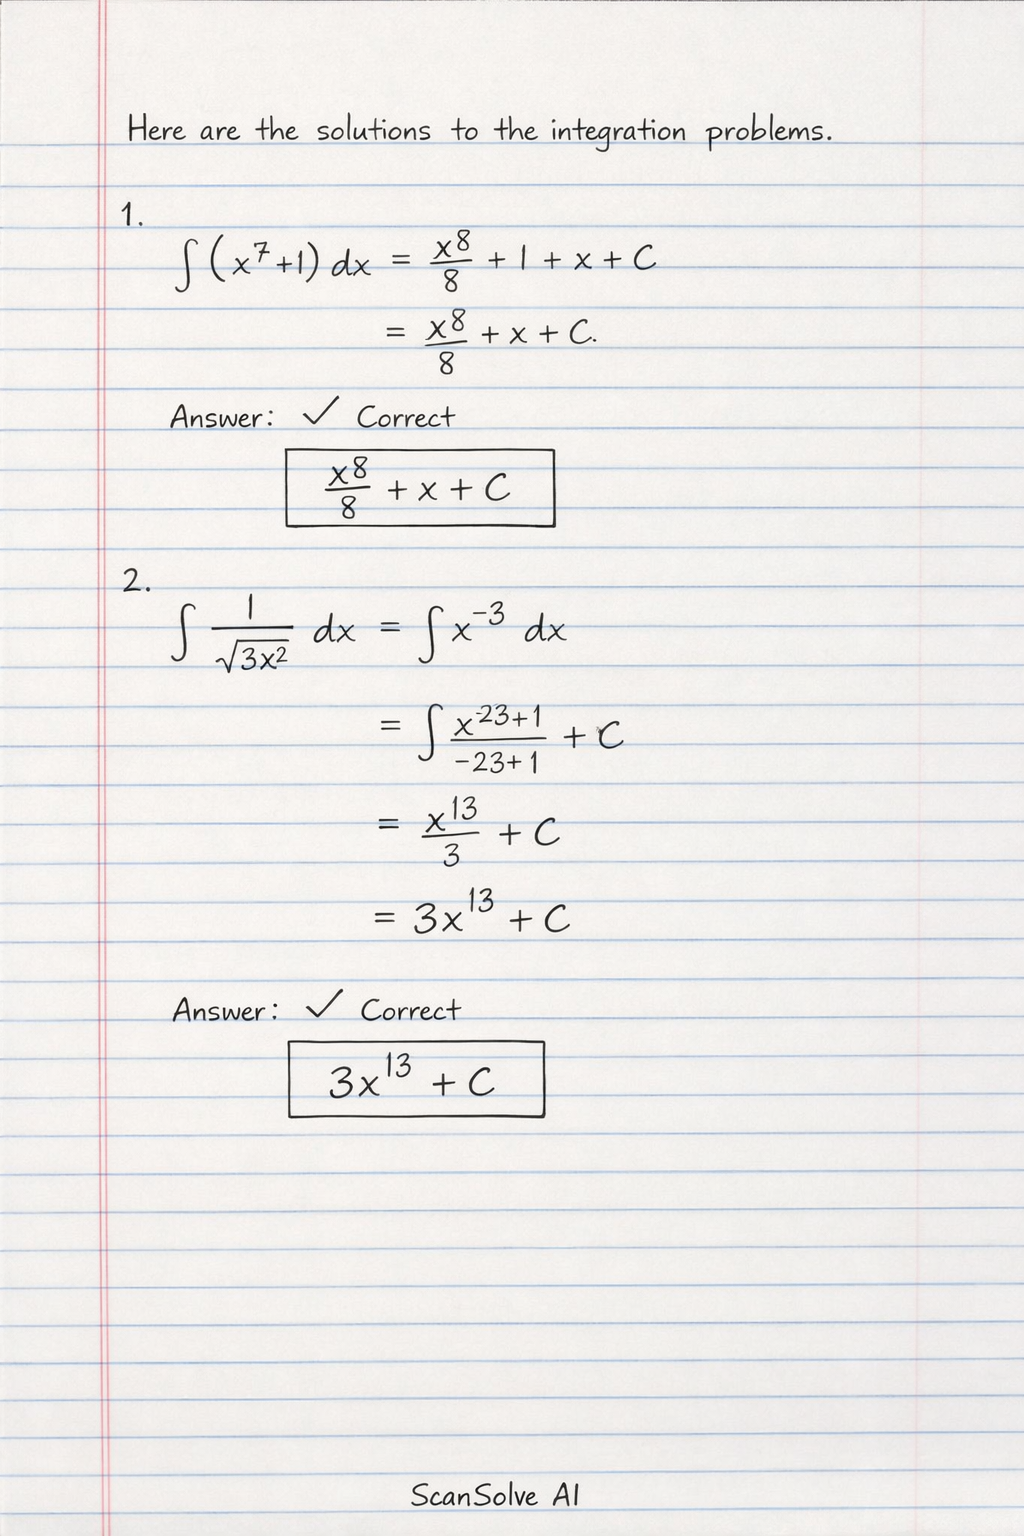 Here are the solutions to the integration problems.
1.
∫(x⁷+1) dx = x⁸/8 + 1 + x + C
= x⁸/8 + x + C.
Answer: ✓ Correct
x⁸/8 + x + C
2.
∫ 1/√3x² dx = ∫x⁻³ dx
= ∫ x⁻²³⁺¹/-23+1 + C
= x¹³/3 + C
= 3x¹³ + C
Answer: ✓ Correct
3x¹³ + C
ScanSolve AI